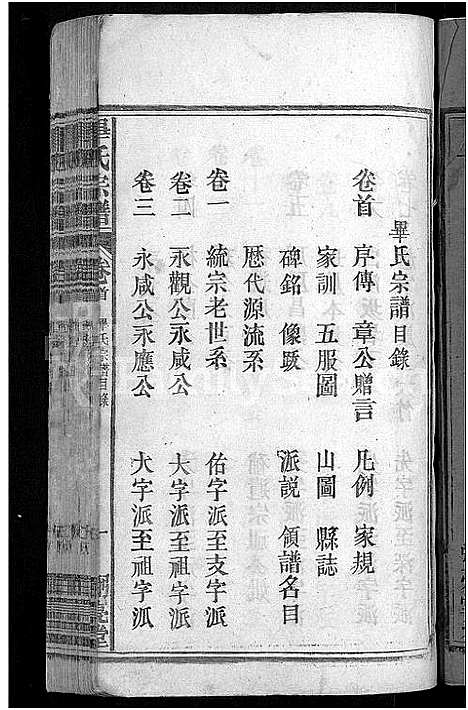 畢氏宗譜目錄
卷首 序傳 章公贈言 凡例 家規
家訓 五服圖 山圖 縣誌
碑銘 像跋 派說 領譜名目
歷代源流系
卷一 統宗老世系 佑字派至支字派
卷二 永觀公永咸公 大字派至祖字派
卷三 永咸公永應公 大字派至祖字派
畢氏宗譜 卷首 畢氏宗譜目錄 一